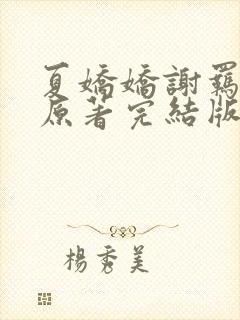 夏嬌嬌謝羈
原著完結版
楊秀美